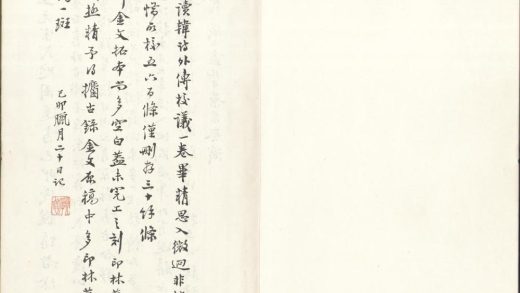 讀韓詩外傳校議一卷畢精思入微迥非
惜所校五六百條僅刪存三十餘條
金文拓本尚多空白蓋未完工之刻印林
極精予得攟古錄金文原稿中多印林
一斑
己卯臘月二十日記